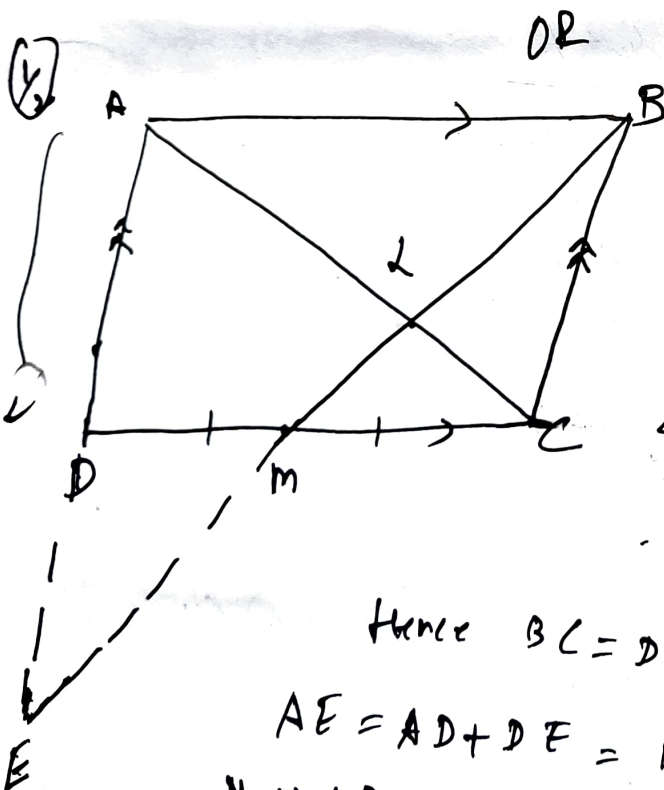 OR
A
B
L
D
m
C
Hence BC = D
AE = AD + DE =
E